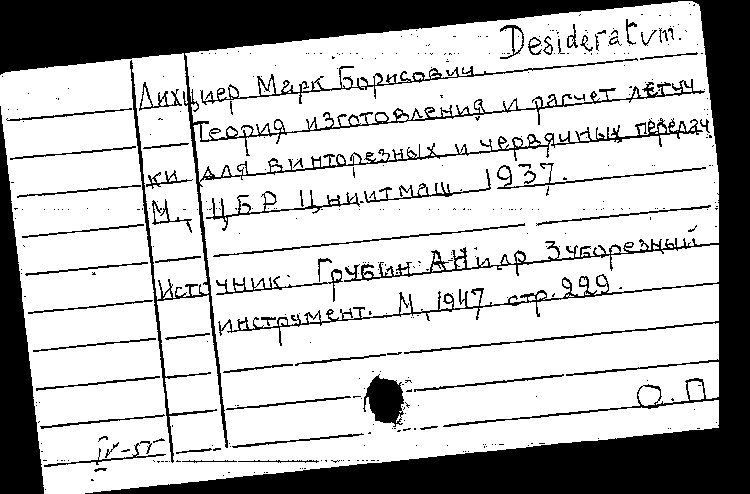 Desideratum.
Лихциер Марк Борисович.
Теория изготовления и расчет летуч
ки для винторезных и червячных передач
М., ЦБР Цниитмаш 1937.
Источник: Грубин АН и др Зуборезный
инструмент. М, 1947. стр. 229.
О.П
IV-55